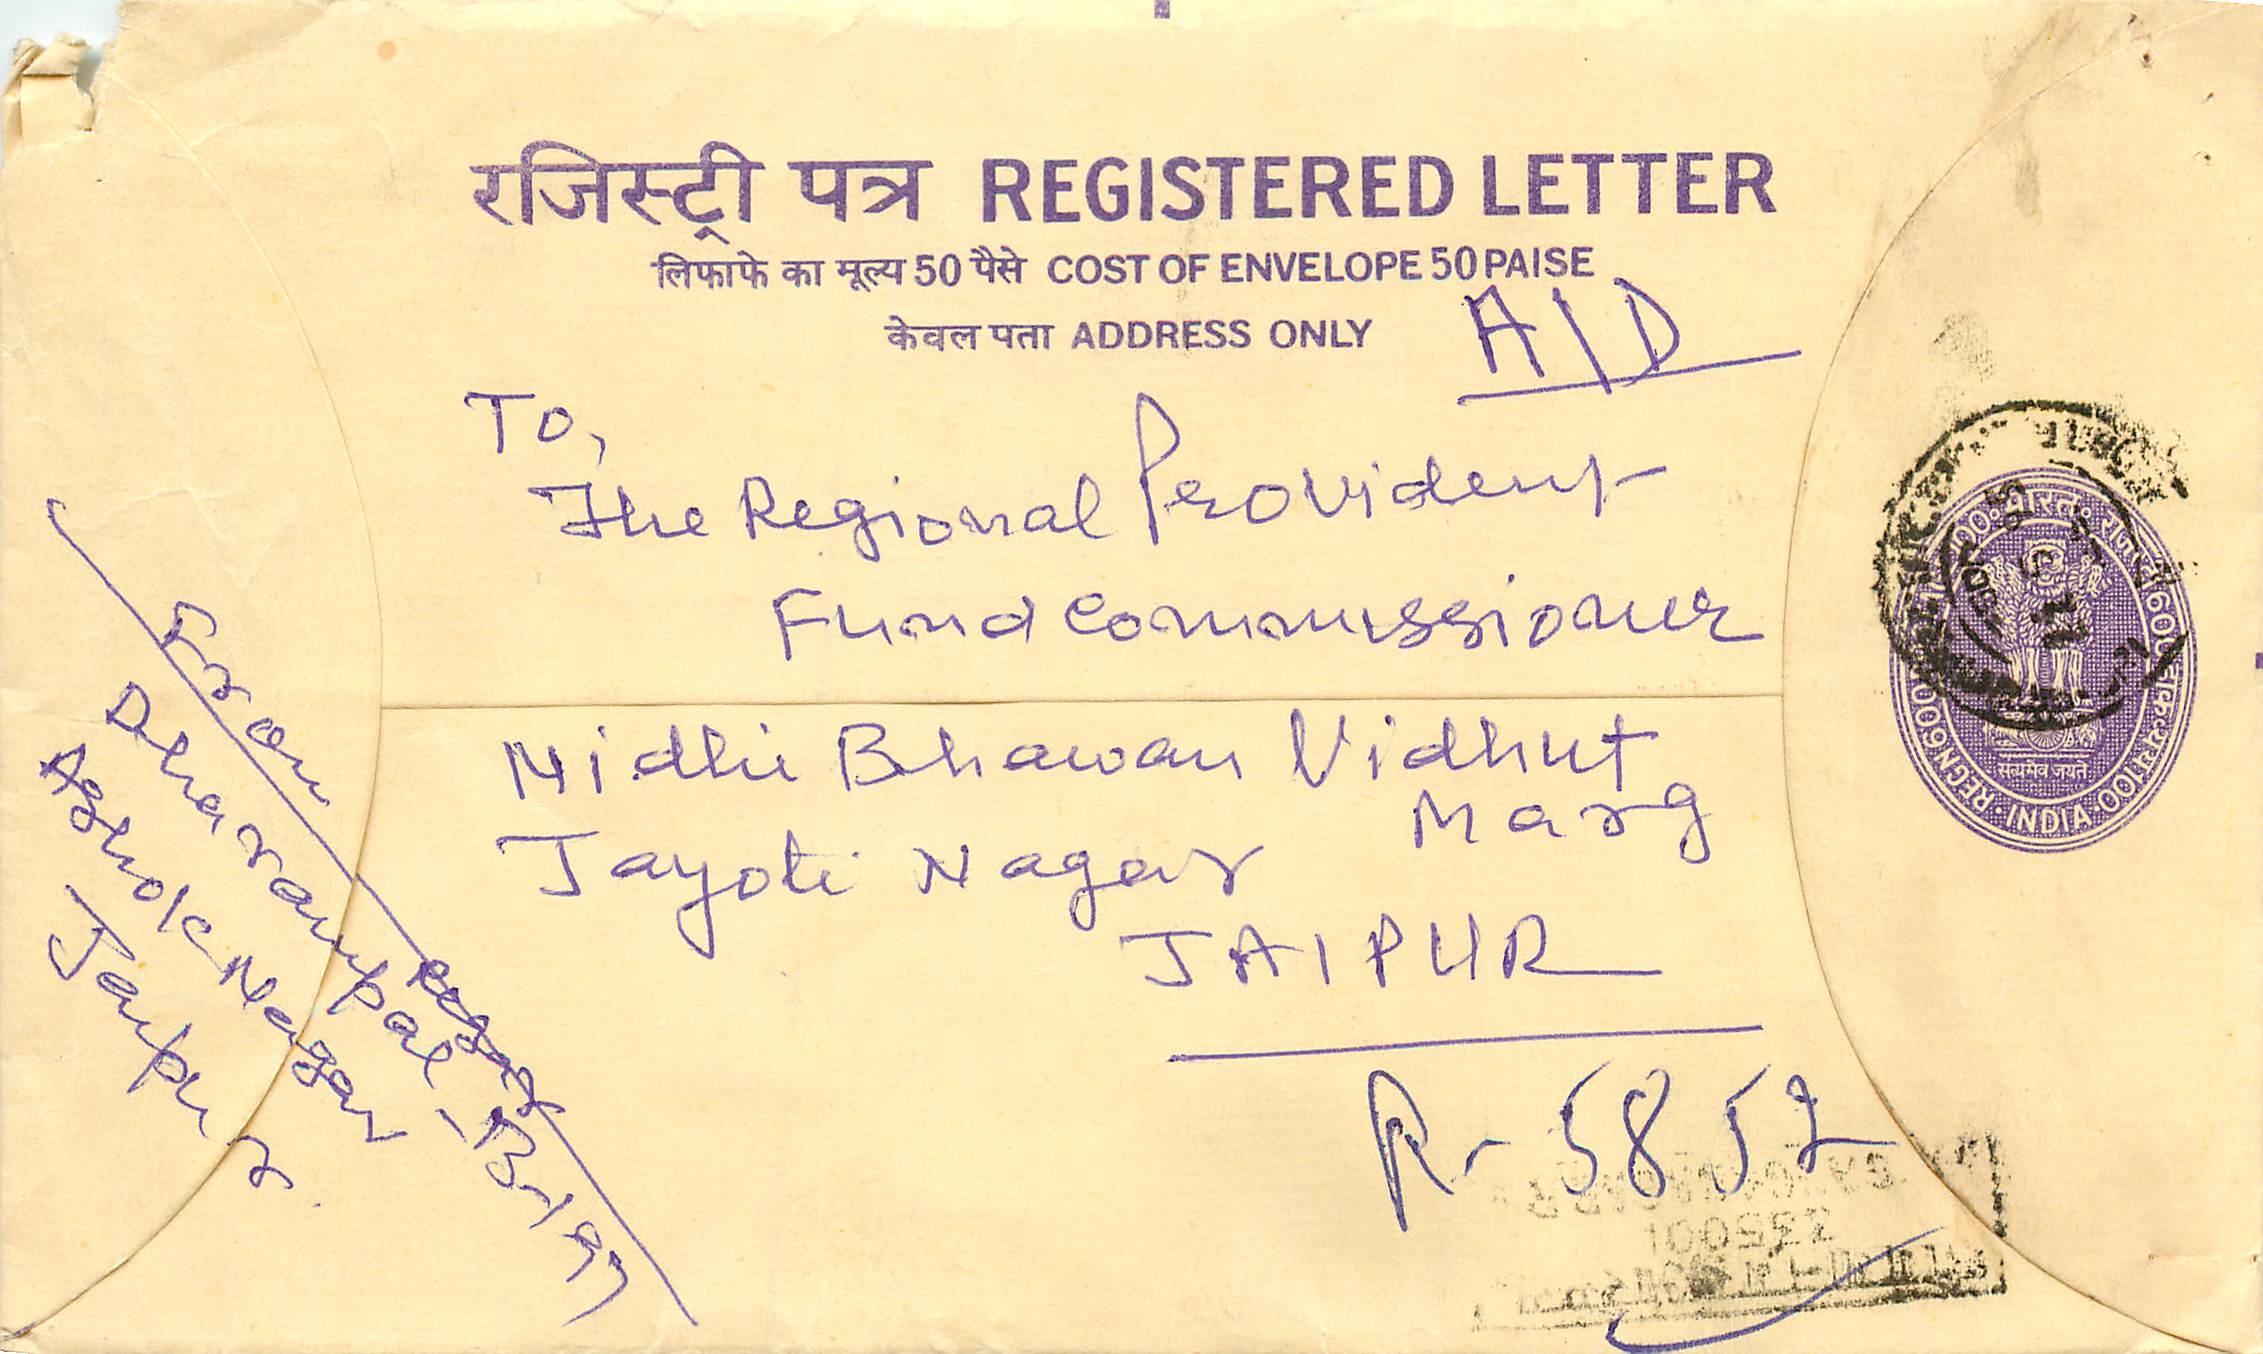 रजिस्ट्री पत्र REGISTERED LETTER
लिफाफे का मूल्य 50 पैसे COST OF ENVELOPE 50 PAISE
केवल पता ADDRESS ONLY
A/D
To,
The Regional Provident
Fund Commissioner
Nidhi Bhawan Vidhut
Marg
Jayoti Nagar
JAIPUR
R-5852
From
Dharampal
Ashok Nagar
Jaipur.
भारत
INDIA
REGN 600
सत्यमेव जयते